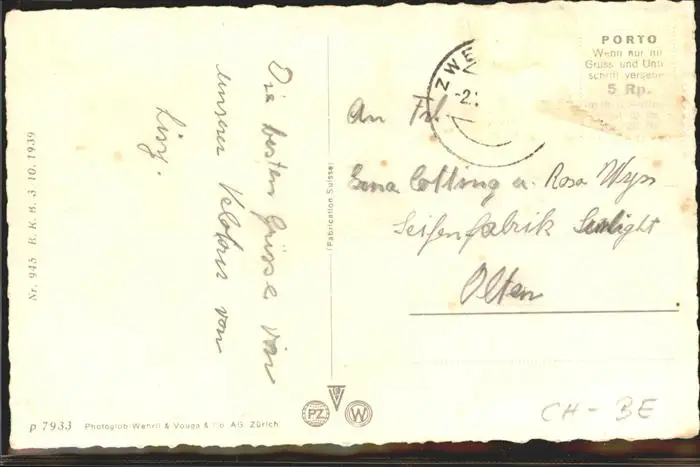 Die besten Grüsse von
unserer Velotour von
Lisy.
Nr. 945 B. K. B. 3. 10. 1939
p 7933 Photoglob-Wehrli & Vouga & Co. AG. Zürich
(Fabrication Suisse)
PZ
W
ZWE
-2.
PORTO
Wenn nur mi
Gruss und Unt
schrift versehe
5 Rp.
An Frl.
Cotting u. Rosa Wyss
Seifenfabrik Sunlight
Olten
CH - BE